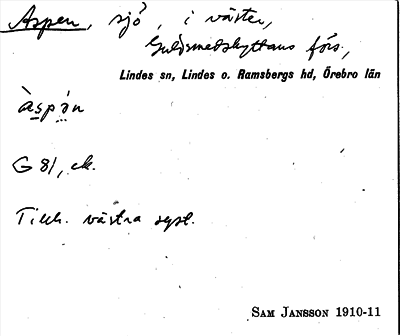 Aspen, sjö, i väster,
Guldsmedshyttans förs.,
Lindes sn, Lindes o. Ramsbergs hd, Örebro län
àspǝn
G 81, ek.
Tillh. västra syst.
SAM JANSSON 1910-11